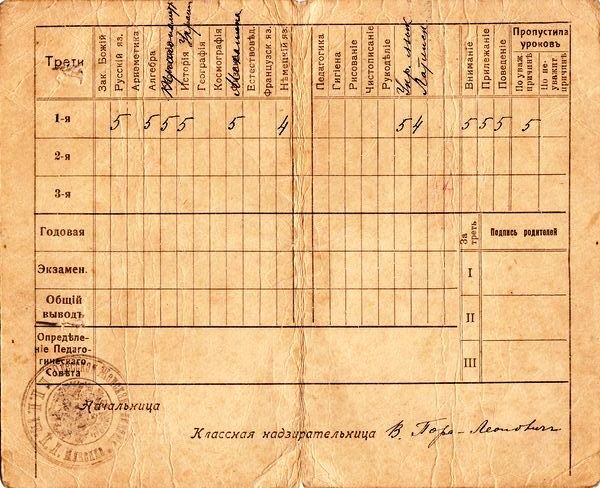 Трети
Зак. Божій
Русскій яз.
Ариѳметика
Алгебра
Исторія Украин
Географія
Космографія
Естествовѣд.
Французск. яз.
Нѣмецкій яз.
Педагогика
Гигіена
Рисованіе
Чистописаніе
Рукодѣліе
Укр. язык
Латинск
Вниманіе
Прилежаніе
Поведеніе
Пропустила уроковъ
По уваж. причинѣ
По не-уважит. причинѣ
1-я 5 5 5 5 5 4 5 4 5 5 5 5
2-я
3-я
Годовая
За треть
Подпись родителей
Экзамен.
I
Общій выводъ
II
Опредѣле-
ніе Педаго-
гическаго
Совѣта
III
Начальница
Классная надзирательница В. Гора-Леонович